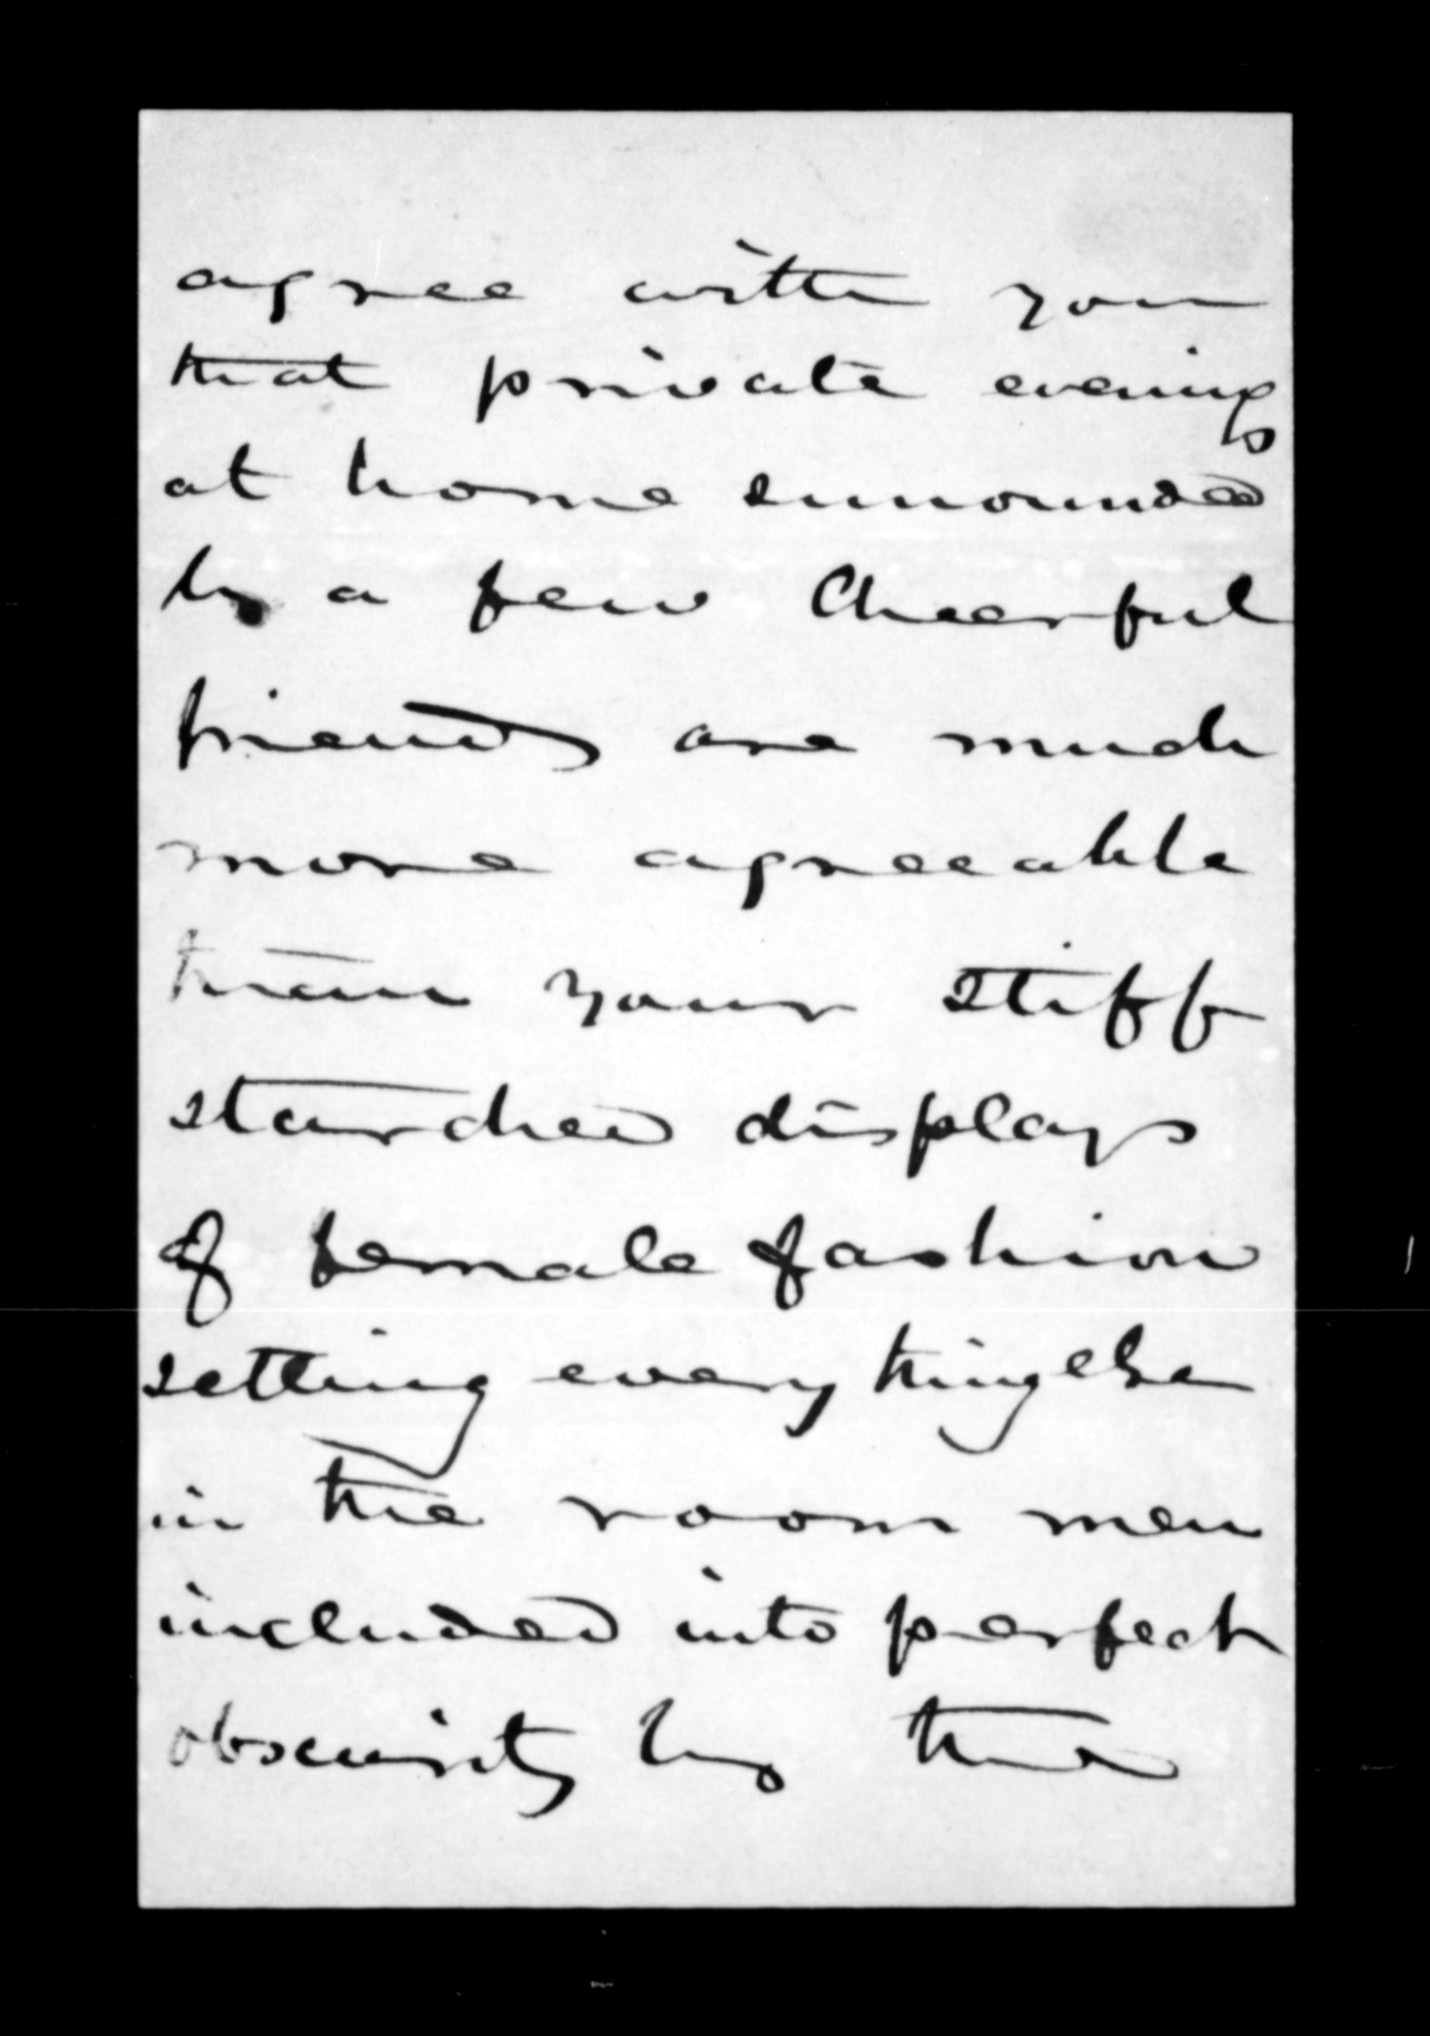 agree with you
that private evenings
at home surrounded
by a few Cheerful
friends are much
more agreeable
than your stiff
starched displays
of female fashion
setting every thing else
in the room men
included into perfect
obscurity by the